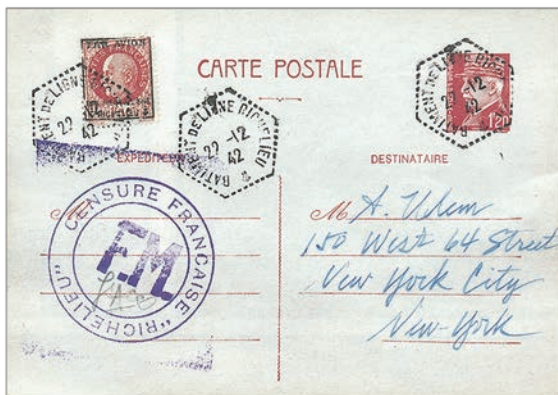 CARTE POSTALE
BATIMENT DE LIGNE RICHELIEU
22-12
42
BATIMENT DE LIGNE RICHELIEU
22-12
42
BATIMENT DE LIGNE RICHELIEU
22-12
42
1,20
EXPÉDITEUR
DESTINATAIRE
M
CENSURE FRANÇAISE
"RICHELIEU"
F.M.
M A.
150 West 64 Street
New York City
New-York